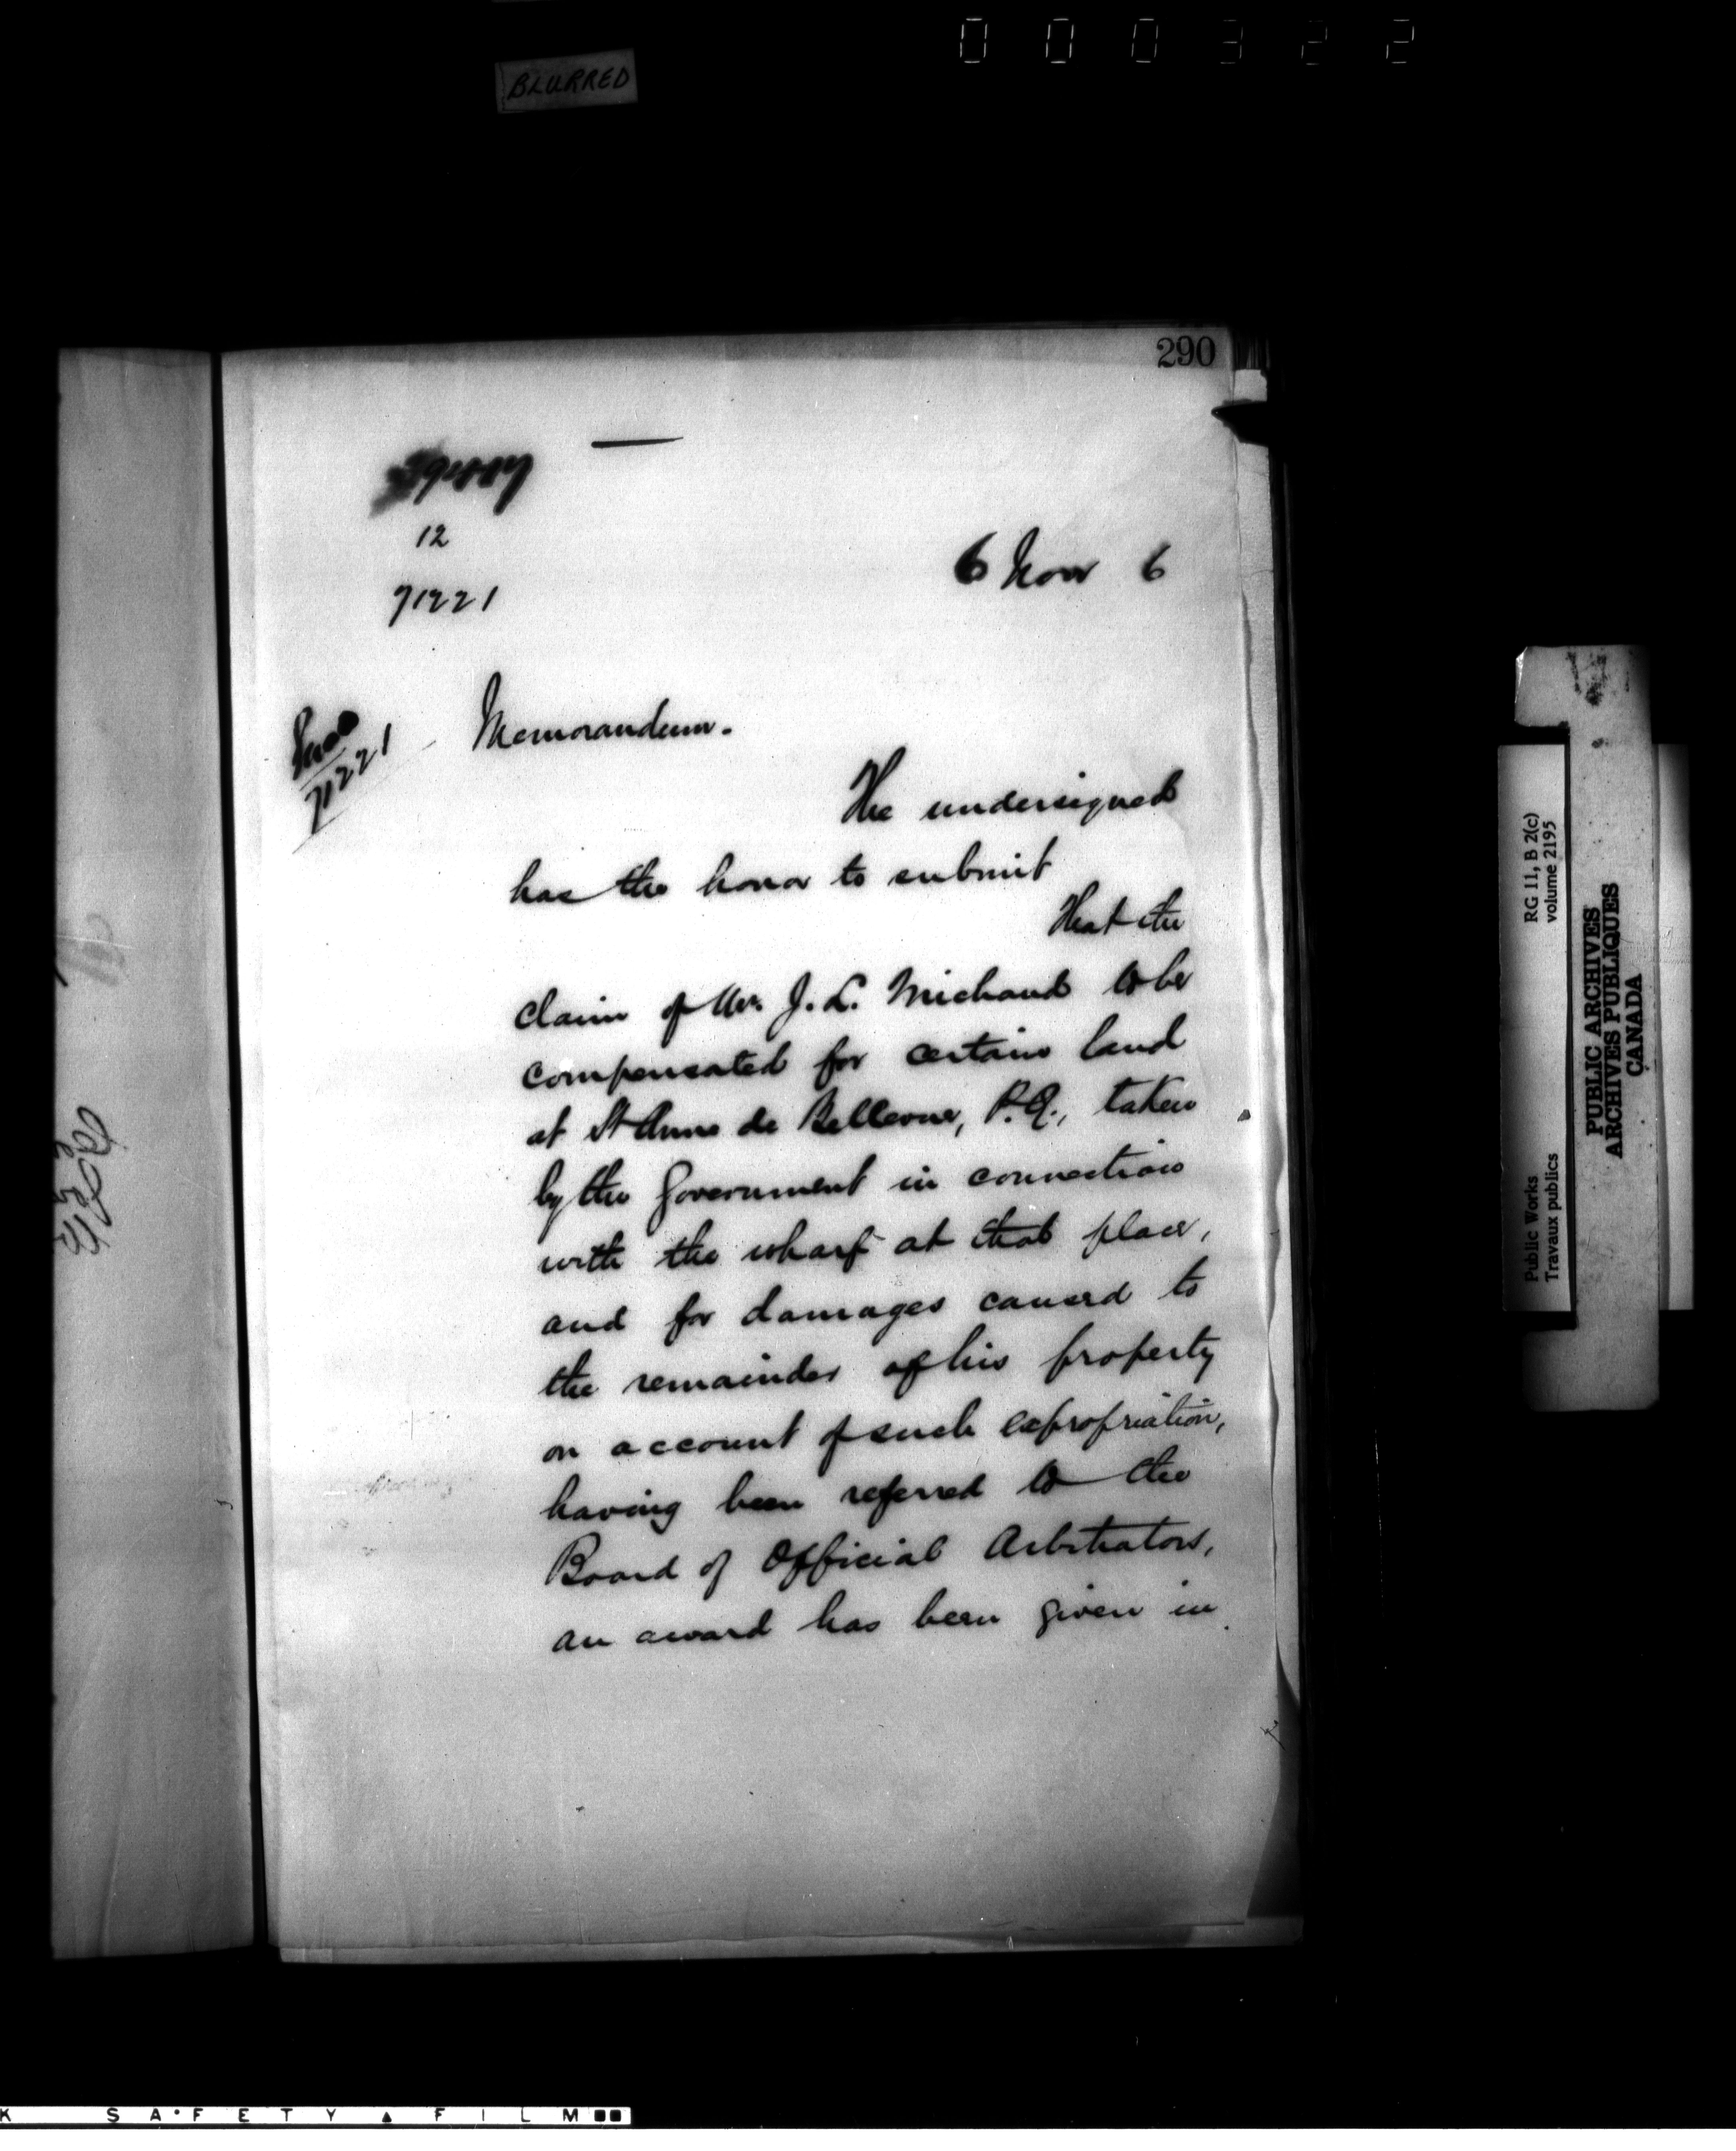 000322
BLURRED
290
12
71221
6 Nov 6
71221
Memorandum.
The undersigned
has the honor to submit
That the
claim of Mr. J. L. Michaud to be
compensated for certain land
at St Anne de Bellevue, P.Q., taken
by the Government in connection
with the wharf at that place,
and for damages caused to
the remainder of his property
on account of such expropriation,
having been referred to the
Board of Official Arbitrators,
an award has been given in
RG 11, B 2(c)
volume 2195
Public Works
Travaux publics
PUBLIC ARCHIVES
ARCHIVES PUBLIQUES
CANADA
K SAFETY FILM